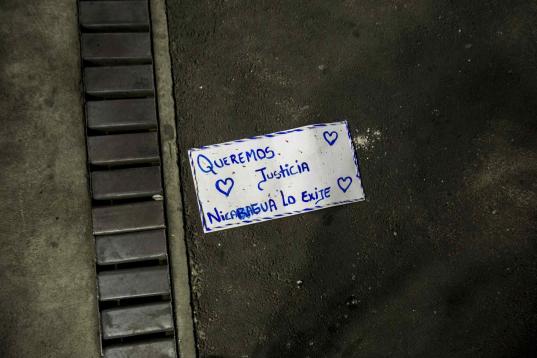 QUEREMOS
JUSTICIA
NICARAGUA LO EXIJE